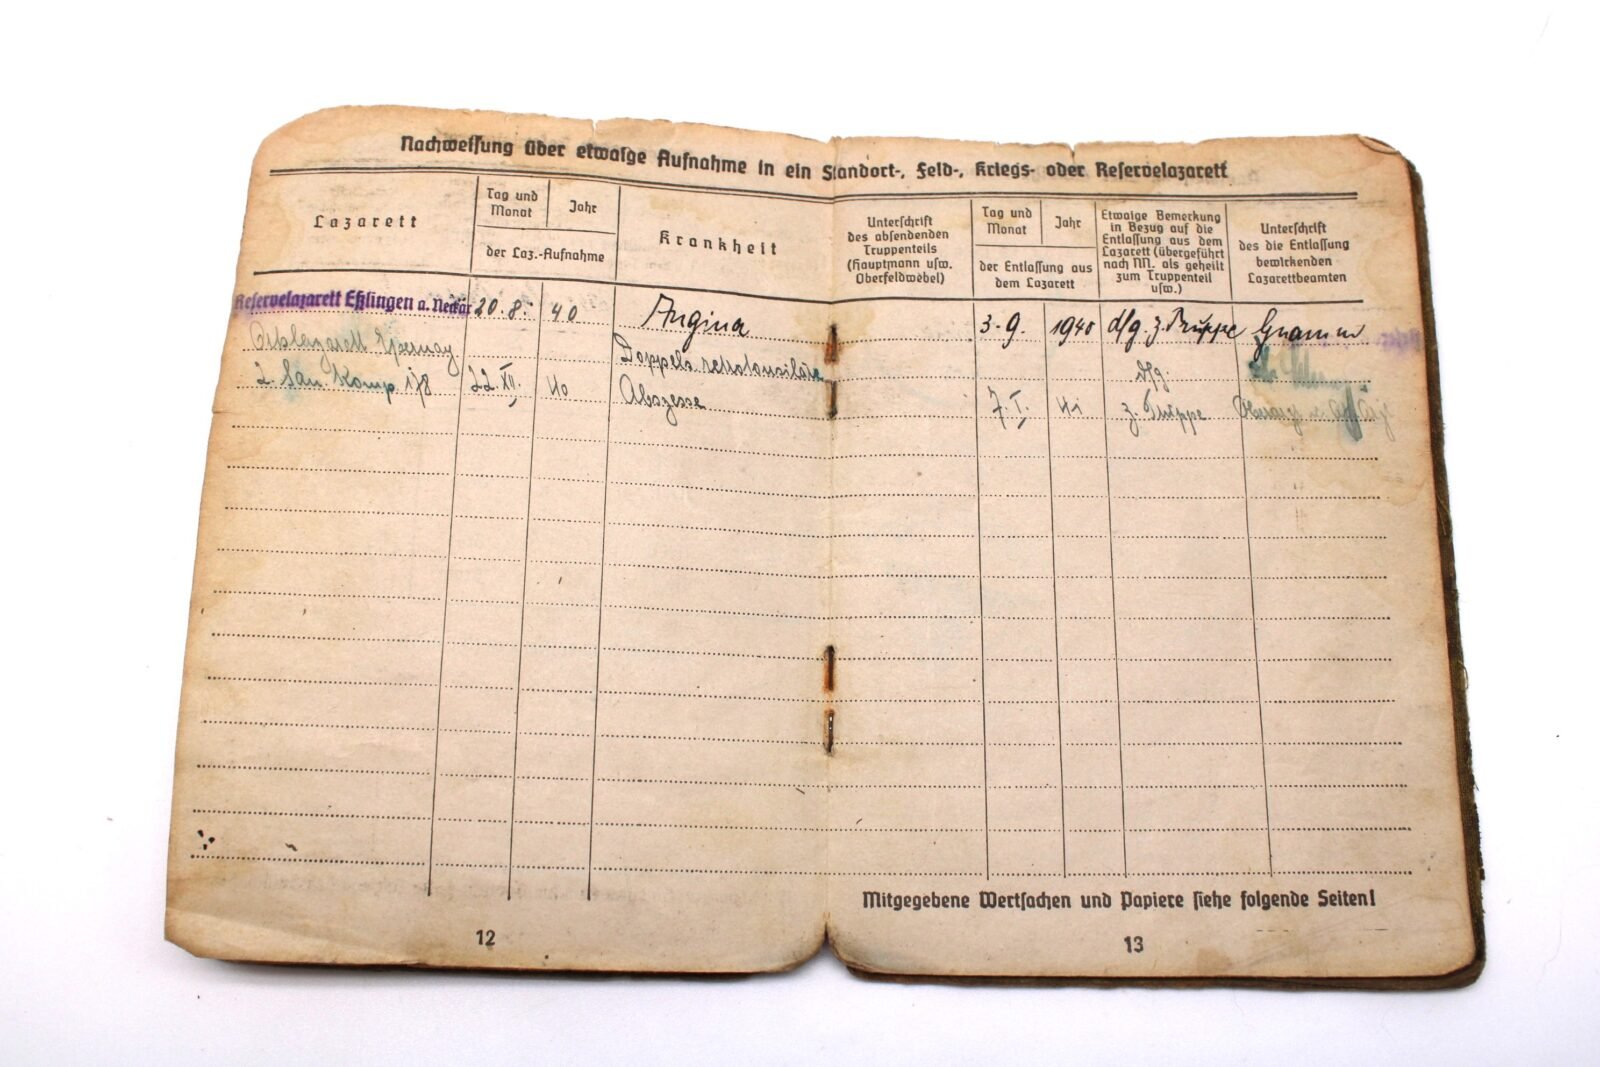 Nachweisung über etwaige Aufnahme in ein Standort-, Feld-, Kriegs- oder Reservelazarett
Lazarett
Tag und Monat
Jahr
der Laz.-Aufnahme
Krankheit
Unterschrift
des absendenden
Truppenteils
(Hauptmann usw.
Oberfeldwebel)
Tag und Monat
Jahr
der Entlassung aus
dem Lazarett
Etwaige Bemerkung
in Bezug auf die
Entlassung aus dem
Lazarett (übergeführt
nach NN. als geheilt
zum Truppenteil
usw.)
Unterschrift
des die Entlassung
bewirkenden
Lazarettbeamten
Reservelazarett Eßlingen a. Neckar 20. 8. 40 Angina 3. 9. 1940 dfg. z. Truppe
Ortslazarett Epernay Doppels. retrotonsiläre dfg.
2. San. Komp. 178 22. XII. 40 Abszesse 7. I. 41 z. Truppe
Mitgegebene Wertsachen und Papiere siehe folgende Seiten!
12
13